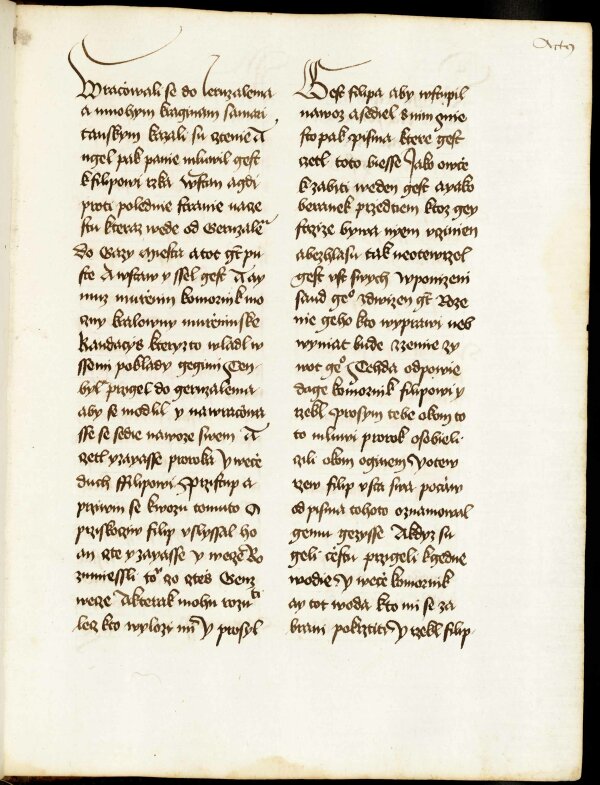 Actꝰ
Wraćowali se do Ieruzalema
a mnohym kraginam samari
tanskym kazali su cztenie A
ngel pak panie mluwil gest
k filipowi rzka Wstan a gdi
proti polednie stranie na ce
stu kteraz wede od Geruzalē
do Gazy miesta a tot gt pu
sta A wstaw y ssel gest A ay
muz murzenin komornik mo
czny kralowny murzeninske
kandacijs kteryzto wladl w
ssemi poklady gegimi Ten
byl przigel do geruzalema
aby se modlil y nawraćowa
sse se sedie na woze swem A
czetl yzayasse proroka y wece
duch ffilipowi Przistup a
prziwin se k wozu tomuto A
prziskocziw filip vslyssal ho
an czte yzayasse y wece Ro
zumiessli toº czo cztes Genz
wece A kterak mohu rozuᵗⁱ
lecz kto wylozi mī y prosyl
Gest filipa aby wstupil
na woz a sediel s nim gmie
sto pak pisma ktere gest
czetl toto biesse Jako owce
k zabiti weden gest a yako
beranek przed tiem ktoz gey
strzize bywa nyem vczinien
a bez hlasu tak neotewrzel
gest vst swych W ponizeni
saud geº zdwizen gt Roze
nie geho kto wyprawi neb
wyniat bude z zemie zy
wot geº Tehda odpowie
dage komornik filipowi y
rzekl Prosym tebe o kom to
to mluwi prorok o sobieli
czili o kom oginem y otew
rzew filip vsta swa poćaw
od pisma tohoto oznamowal
gemu gezisse A kdyz su
geli cestu przigeli k gedne
wodie y wece komornik
ay tot woda kto mi se za
brani pokrztiti y rzekl filip